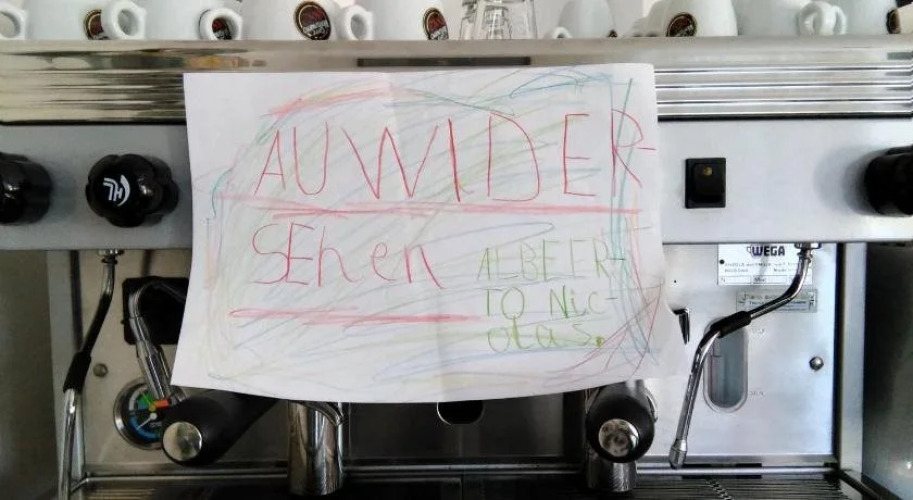 AUWIDER-
SEhen
ALBEER-
TO Nic-
olas.
WEGA